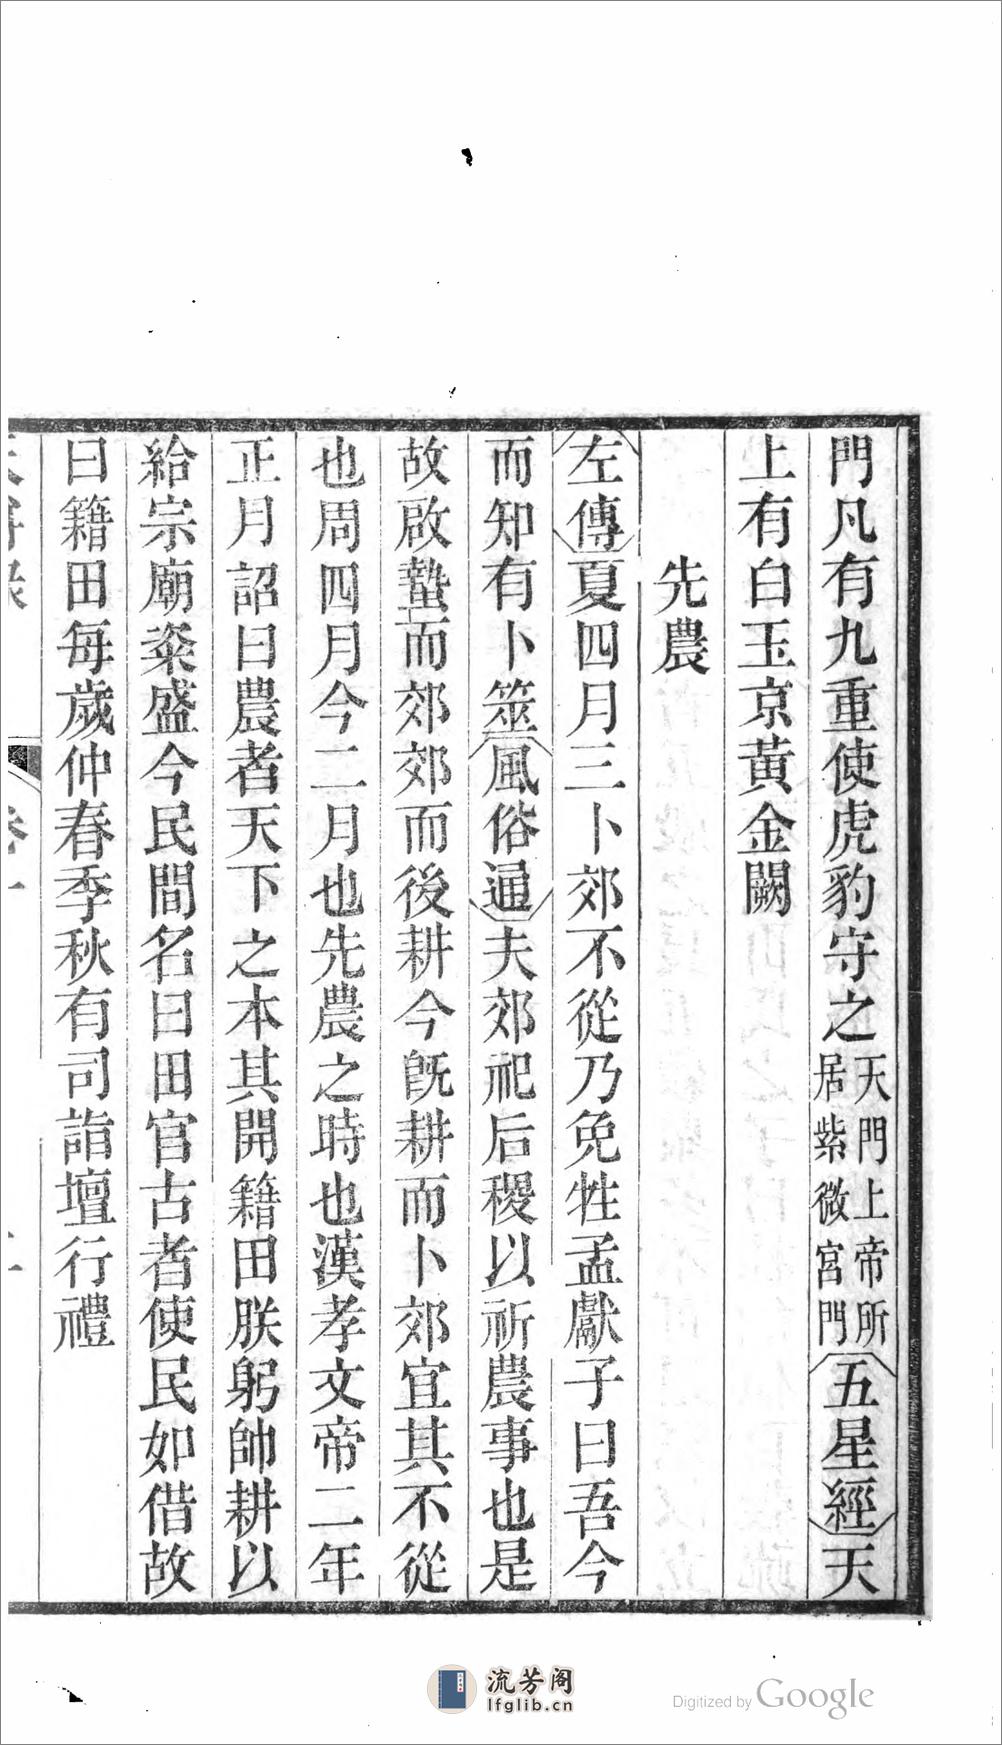 門凡有九重使虎豹守之天門上帝所居紫微宮門五星經天
上有白玉京黃金闕
先農
左傳夏四月三卜郊不從乃免牲孟獻子曰吾今
而知有卜筮風俗通夫郊祀后稷以祈農事也是
故啟蟄而郊郊而後耕今旣耕而卜郊宜其不從
也周四月今二月也先農之時也漢孝文帝二年
正月詔曰農者天下之本其開籍田朕躬帥耕以
給宗廟粢盛今民間名曰田官古者使民如借故
曰籍田每歲仲春季秋有司詣壇行禮
流芳阁
lfglib.cn
Digitized by Google